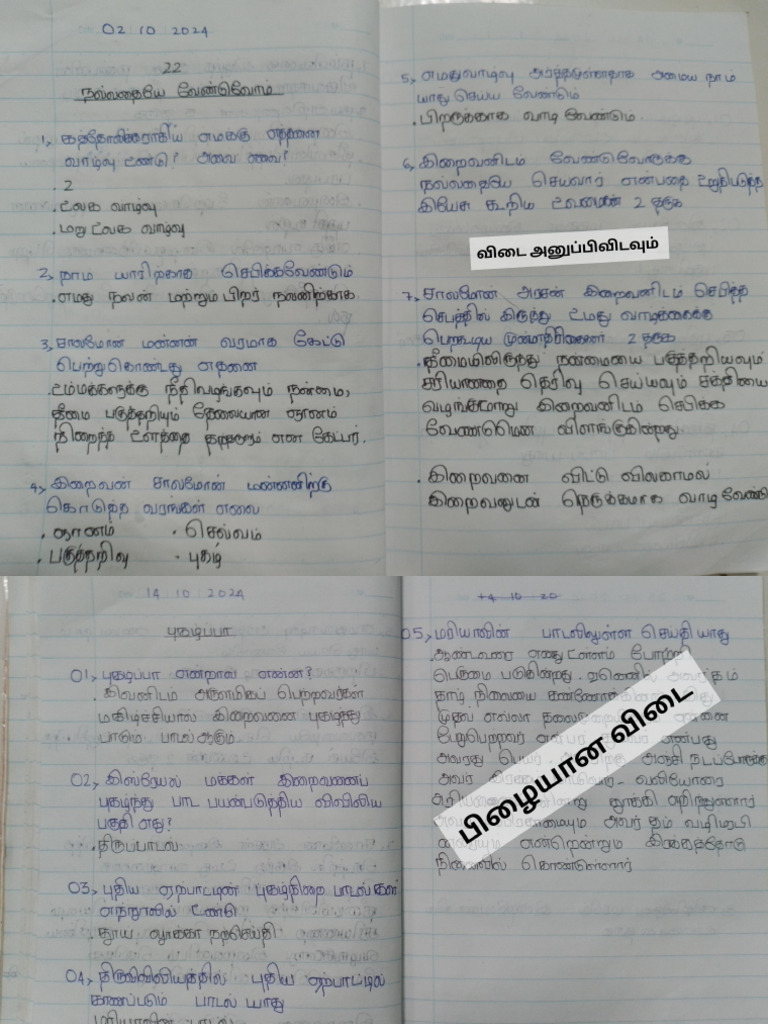 02 10 2024
22
நல்லதையே வேண்டுவோம்
1, கத்தோலிக்கராகிய எமக்கு எத்தனை
வாழ்வு உண்டு? அவை எவை?
. 2
. உலக வாழ்வு
. மறு உலக வாழ்வு
2, நாம் யாரிற்காக செபிக்கவேண்டும்
. எமது நலன் மற்றும் பிறர் நலனிற்காக
3, சாலமோன் மன்னன் வரமாக கேட்டு
பெற்றுகொண்டது எதனை
. உம்மக்களுக்கு நீதிவழங்கவும் நன்மை,
தீமை பகுத்தறியும் தேவையான ஞானம்
நிறைந்த உளத்தை தந்தருளும் என கேட்டார்.
4, இறைவன் சாலமோன் மன்னனிற்கு
கொடுத்த வரங்கள் எவை
. ஞானம் . செல்வம்
. பகுத்தறிவு . புகழ்
5, எமதுவாழ்வு அர்த்தமுள்ளதாக அமைய நாம்
யாது செய்ய வேண்டும்
. பிறருக்காக வாழ வேண்டும்
6, இறைவனிடம் வேண்டுவோருக்கு
நல்லதையே செய்வார் என்பதை உறுதிபடுத்த
இயேசு கூறிய உவமைகள் 2 தருக
விடை அனுப்பிவிடவும்
7, சாலமோன் அரசன் இறைவனிடம் செபித்த
செபத்தில் இருந்து உமது வாழ்க்கைக்கு
பெறகூடிய முன்மாதிரிகைகள் 2 தருக
. தீமையிலிருந்து நன்மையை பகுத்தறியவும்
சரியானதை தெரிவு செய்யவும் சக்தியை
வழங்குமாறு இறைவனிடம் செபிக்க
வேண்டுமென விளங்குகின்றது
. இறைவனை விட்டு விலகாமல்
இறைவனுடன் நெருக்கமாக வாழ வேண்டு
14 10 2024
புகழ்ப்பா
01, புகழ்ப்பா என்றால் என்ன?
. இவனிடம் அருளாமிகப் பெற்றவர்கள்
மகிழ்ச்சியால் இறைவனை புகழ்ந்து
பாடும் பாடல் ஆகும்
02, இஸ்ரேயல் மக்கள் இறைவனைப்
புகழ்ந்து பாட பயன்படுத்திய விவிலிய
பகுதி எது?
. திருப்பாடல்
03, புதிய ஏற்பாட்டின் புகழ்நிறை பாடல்கள்
எந்நூலில் உண்டு
. தூய லூக்கா நற்செய்தி
04, திருவிவிலியத்தில் புதிய ஏற்பாட்டில்
காணப்படும் பாடல் யாது
மரியாவின் பாடல்
14 10 20
05, மரியாவின் பாடலிலுள்ள செய்தி யாது
. ஆண்டவரை எனது உள்ளம் போற்றி
பெருமை படுகின்றது. ஏனெனில்
தாழ் நிலையை கண்ணோக்கினார்
முதல் எல்லா தலைமுறை என்னை
பேறுபெற்றவர் என்பர் என்பது
அவரது பெயர் அஞ்சி நடப்போருக்கு
அவர் இரக்கம் வலியோரை
தூக்கி எறிந்துள்ளார்
அவர் தம் வழிமரபி
என்றென்றும் இரக்கத்தோடு
நினைவில் கொண்டுள்ளார்
பிழையான விடை